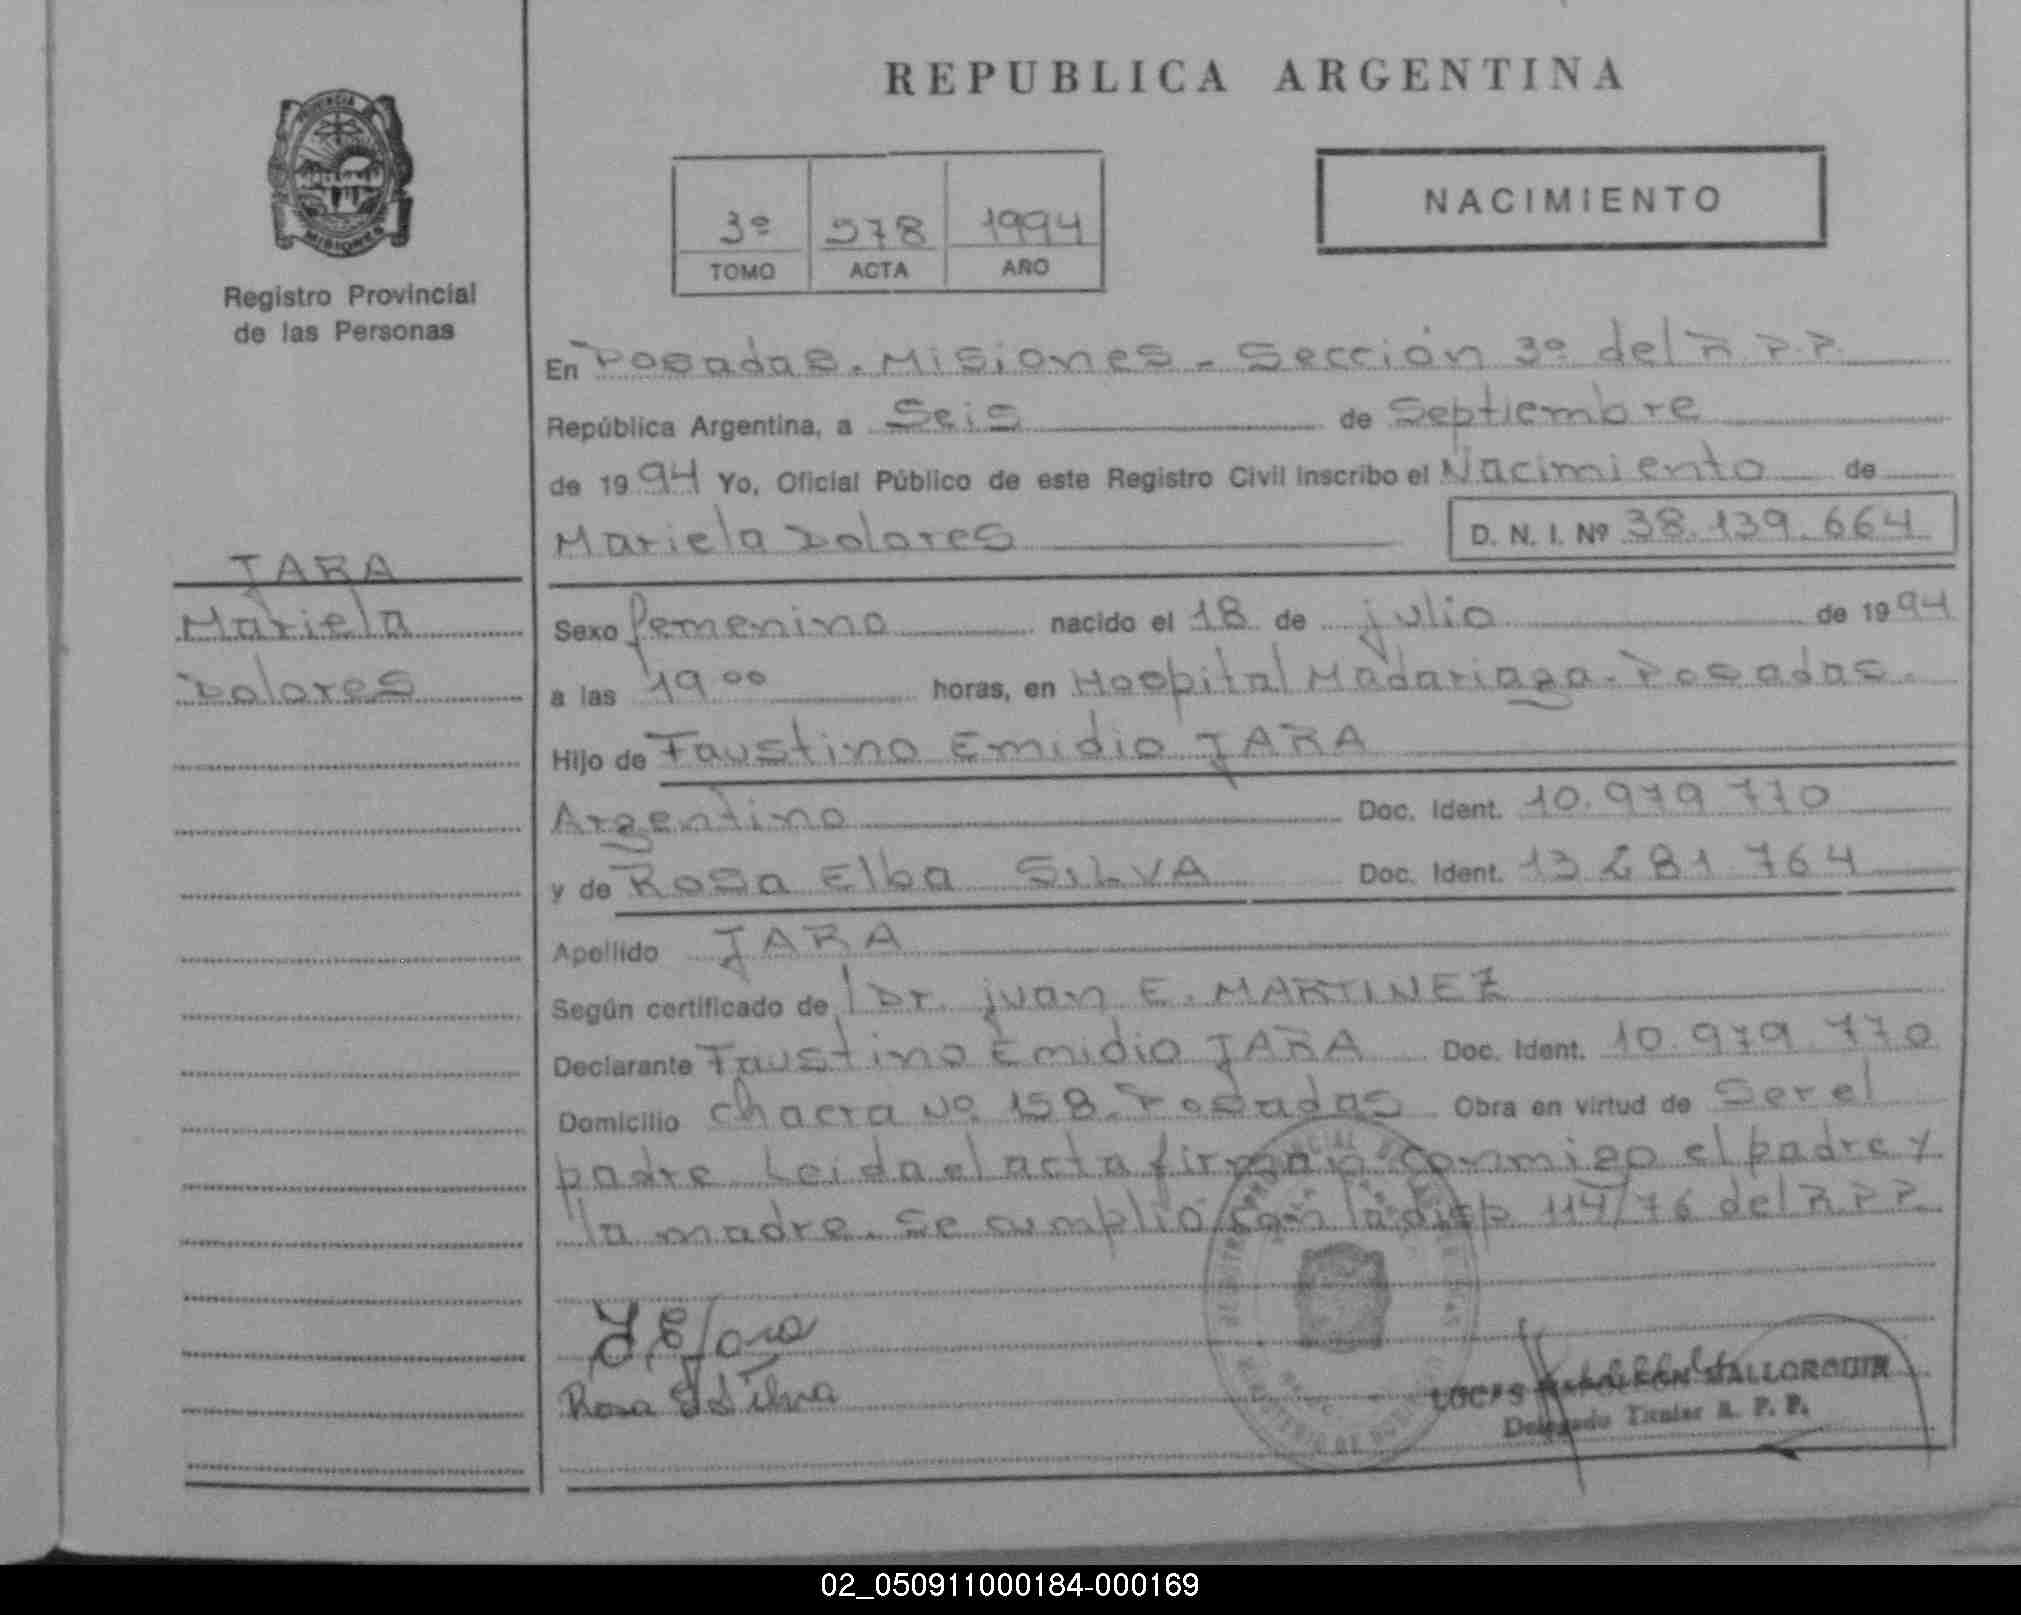 REPUBLICA ARGENTINA
PROVINCIA
MISIONES
Registro Provincial
de las Personas
3º 978 1994
TOMO ACTA AÑO
NACIMIENTO
En Posadas. Misiones - Sección 3º del R.P.P.
República Argentina, a Seis de Septiembre
de 1994 Yo, Oficial Público de este Registro Civil Inscribo el Nacimiento de
Mariela Dolores D. N. I. Nº 38.139.664
JARA
Mariela
Dolores
Sexo femenino nacido el 18 de julio de 1994
a las 19 00 horas, en Hospital Madariaga - Posadas.
Hijo de Faustino Emidio JARA
Argentino Doc. Ident. 10.979.770
y de Rosa Elba SILVA Doc. Ident. 13.281.764
Apellido JARA
Según certificado de Dr. juan E. MARTINEZ
Declarante Faustino Emidio JARA Doc. Ident. 10.979.770
Domicilio chacra Nº 158. Posadas Obra en virtud de Ser el
padre Leida el acta firman conmigo el padre y
la madre. Se cumplió con la disp 114/76 del R.P.P.
Rosa E Silva
Delegado Titular R. P. P.
02_050911000184-000169